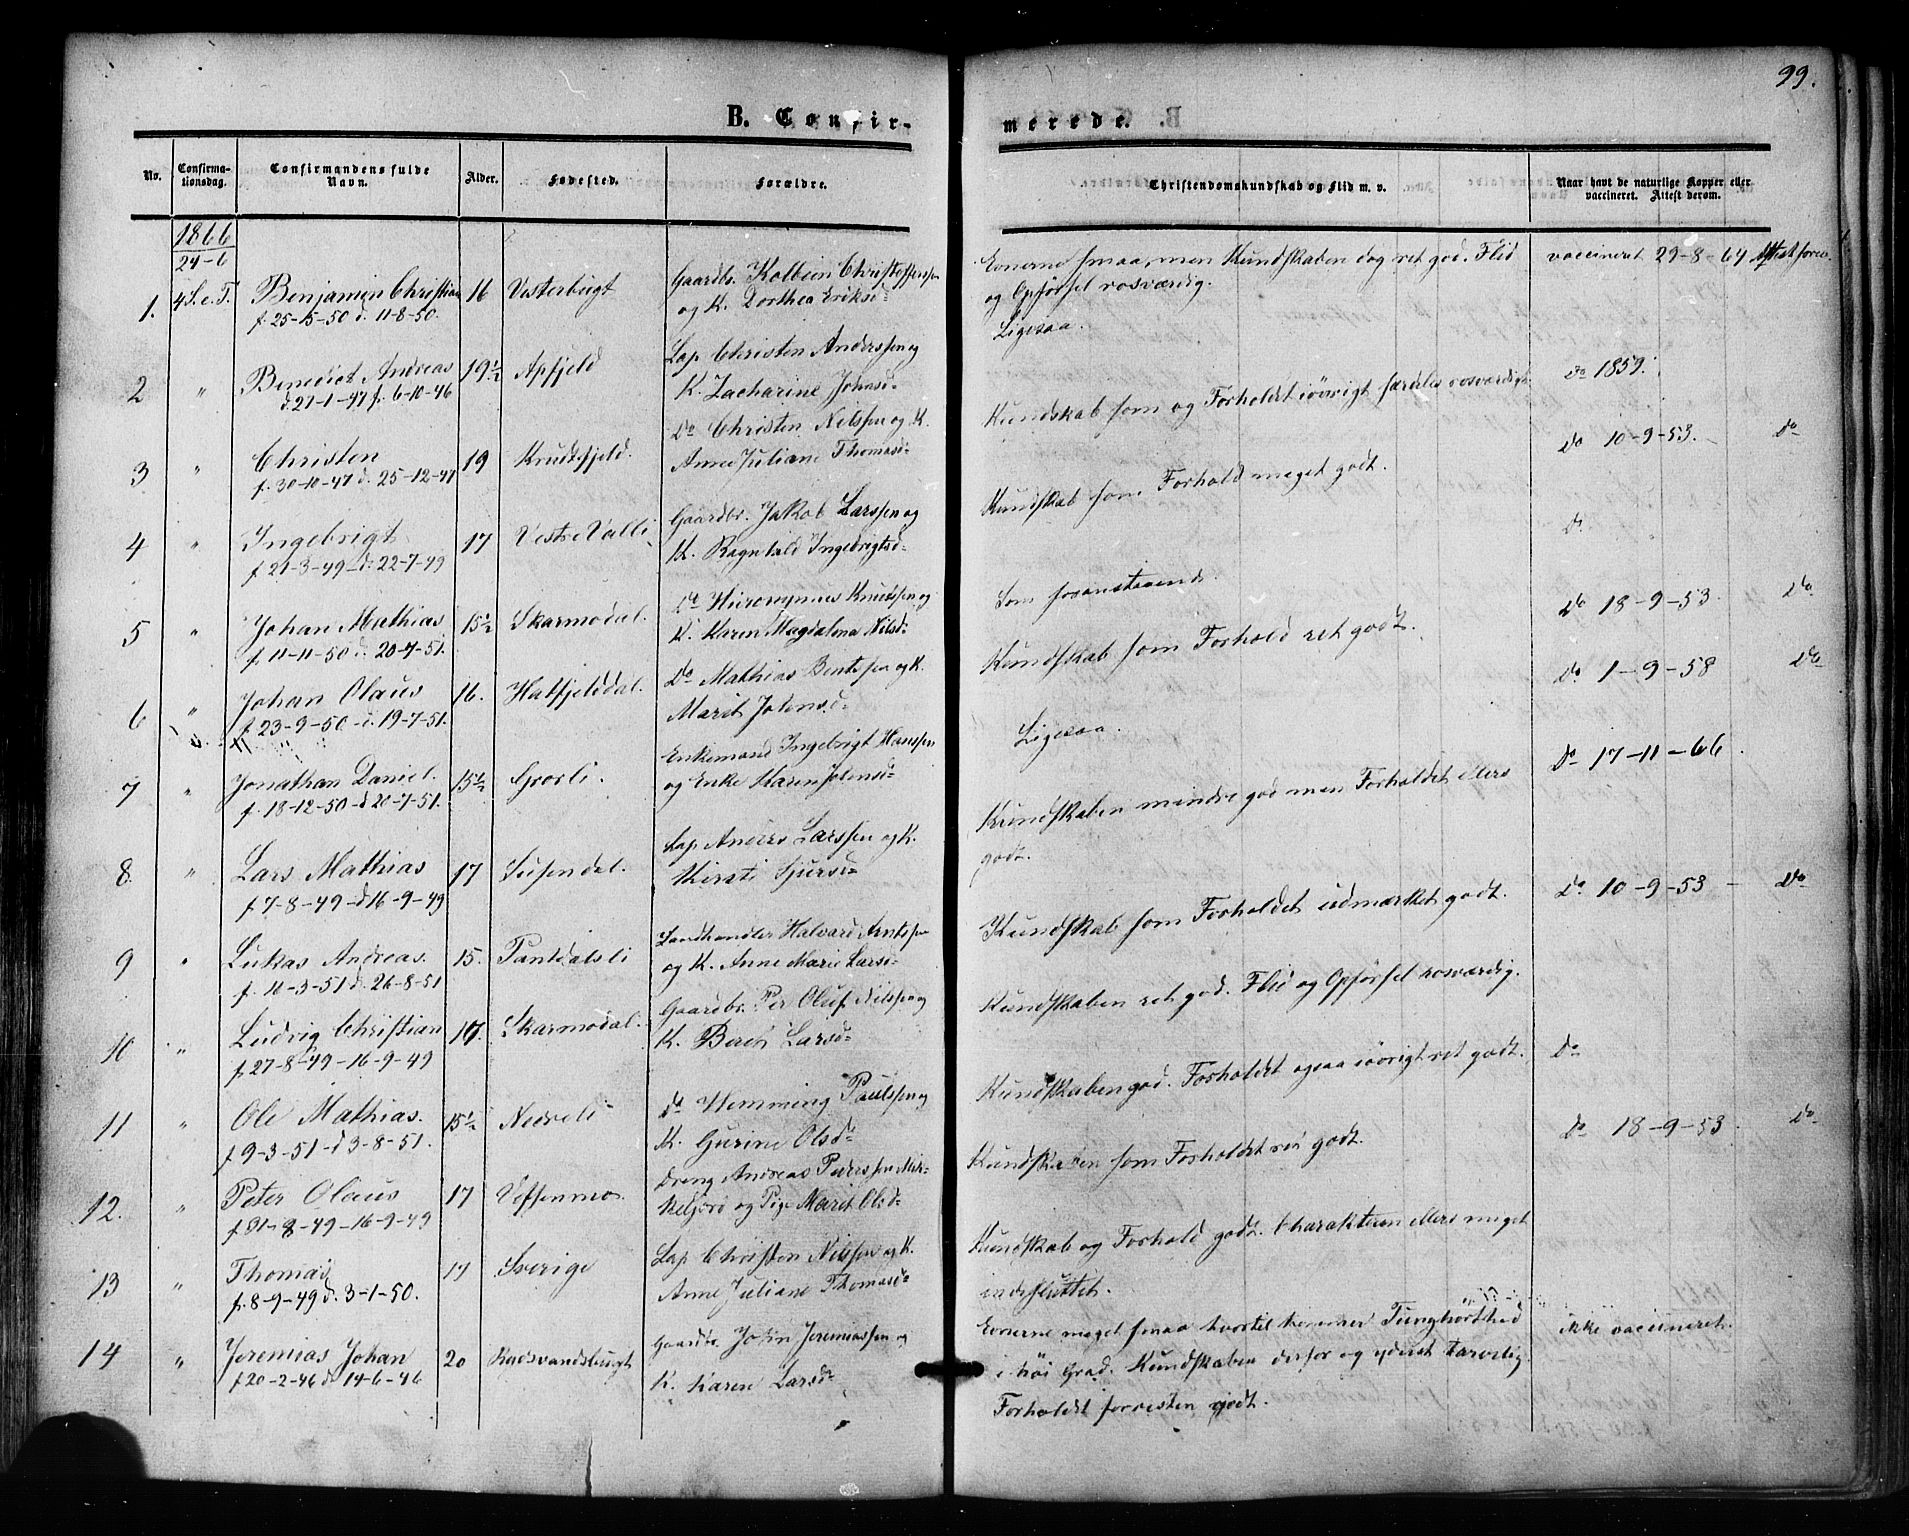 99.
B. Confirmerede.
No.
Confirmationsdag.
Confirmandens fulde Navn.
Alder.
Fødested.
Forældre.
Christendomskundskab og Flid m. v.
Naar havt de naturlige Kopper eller vaccineret. Attest derom.
1866
24-6
4 S. e. T.
1. Benjamin Christian 16 Vesterbugt Gaardbr. Kolbein Christoffersen
f. 25-15-50 d. 11-8-50. og K. Dorthea Eriksd-
Evnerne smaa, men Kundskaben dog ret god. Flid vaccineret 29-8-64 Attest forev.
og Opførsel rosværdig.
2 " Benedict Andreas 19½ Apfjeld Lap Christen Anderssen og
d. 27-1-47 f. 6-10-46 K. Zacharine Johnsd-
Ligesaa. do 1859.
3 " Christen 19 Krudtfjeld. Do Christen Nilssen og K.
f. 30-10-47 d. 25-12-47 Anne Juliane Thomasd-
Kundskab som og Forholdet iøvrigt særdeles rosværdigt do 10-9-53. do
4 " Ingebrigt 17 Vestre Valli Gaardbr. Jakob Larssen og
f. 21-3-49 d. 22-7-49 K. Ragnhild Ingebrigtsd-
Kundskab som Forhold meget godt. do
5 " Johan Mathias 15½ Skarmodal. Do Hieronymus Knudssen og
f. 11-11-50 d. 20-7-51. K. Karen Magdalena Nilsd-
Som foranstaaende. do 18-9-53. do
6 " Johan Olaus 16. Hatfjelddal. Do Mathias Bentssen og K.
f. 23-9-50 d. 19-7-51. Marit Johnsd-
Kundskab som Forhold ret godt. do 1-9-58 do
7 " Jonathan Daniel. 15½ Grøvli. Enkemand Ingebrigt Hanssen
f. 18-12-50 d. 20-7-51. og Enke Karen Johnsd-
Ligesaa. do 17-11-66
8 " Lars Mathias 17 Susendal. Lap Anders Larssen og K.
f. 7-8-49 d. 16-9-49 Kirsti Sjursd-
Kundskaben mindre god men Forholdet ellers
godt.
9 " Lukas Andreas. 15. Pantdalsli Landhandler Halvard Arntssen
f. 10-3-51 d. 26-8-51 og K. Anne Marie Larsd-
Kundskab som Forholdet udmærket godt. do 10-9-53 do
10 " Ludvig Christian 17. Skarmodal. Gaardbr. Per Oluf Nilssen og
f. 27-8-49-16-9-49 K. Beret Larsd-
Kundskaben ret god. Flid og Opførsel rosværdig.
11 " Ole Mathias. 15½ Nedreli do Hemming Paulssen og
f. 9-3-51 d. 3-8-51. K. Gurine Olsd-
Kundskaben god. Forholdet ogsaa iøvrigt ret godt. do
12. " Peter Olaus 17 Vefsenmo. Dreng Andreas Peterssen
f. 31-8-49-16-9-49 og Pige Marit Olsd-
Kundskaben som Forholdet ret godt. do 18-9-53. do
13 " Thomas 17 Sverige Lap Christen Nilssen og K.
f. 8-9-49 d. 3-1-50. Anne Juliane Thomasd-
Kundskab og Forhold godt. Charakteren ellers meget
indesluttet.
14 " Jeremias Johan 20 Rødsvandsbugt Gaardbr. John Jeremiassen og
f. 20-2-46 d. 14-6-46 K. Karen Larsd-
Evnerne meget smaa hvortil kommer Tunghørthed ikke vaccineret.
i høi Grad. Kundskaben derfor og yderst tarvelig.
Forholdet forresten godt.